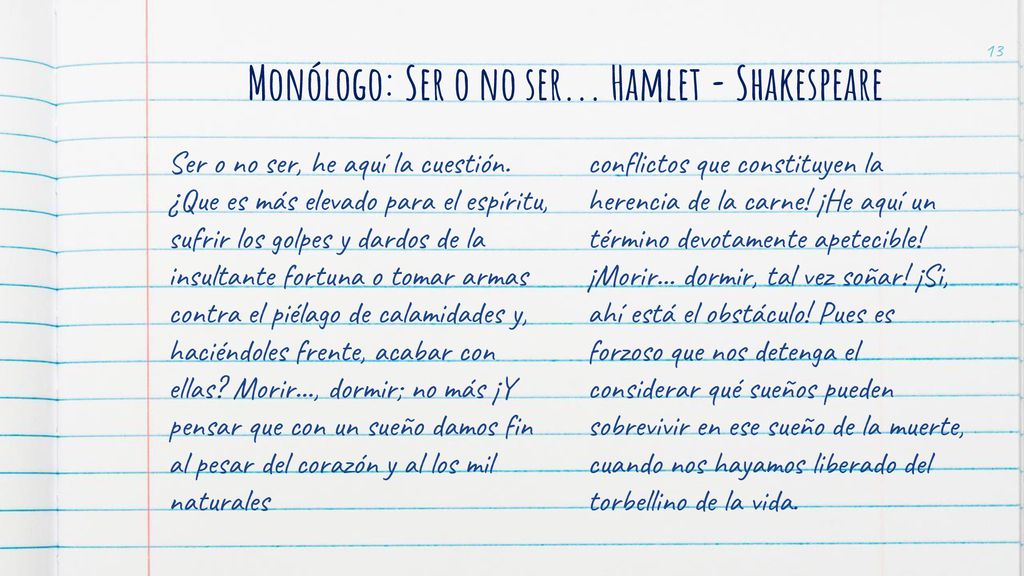 13
Monólogo: Ser o no ser... Hamlet - Shakespeare
Ser o no ser, he aquí la cuestión.
¿Que es más elevado para el espíritu,
sufrir los golpes y dardos de la
insultante fortuna o tomar armas
contra el piélago de calamidades y,
haciéndoles frente, acabar con
ellas? Morir..., dormir; no más ¡Y
pensar que con un sueño damos fin
al pesar del corazón y al los mil
naturales
conflictos que constituyen la
herencia de la carne! ¡He aquí un
término devotamente apetecible!
¡Morir... dormir, tal vez soñar! ¡Si,
ahí está el obstáculo! Pues es
forzoso que nos detenga el
considerar qué sueños pueden
sobrevivir en ese sueño de la muerte,
cuando nos hayamos liberado del
torbellino de la vida.